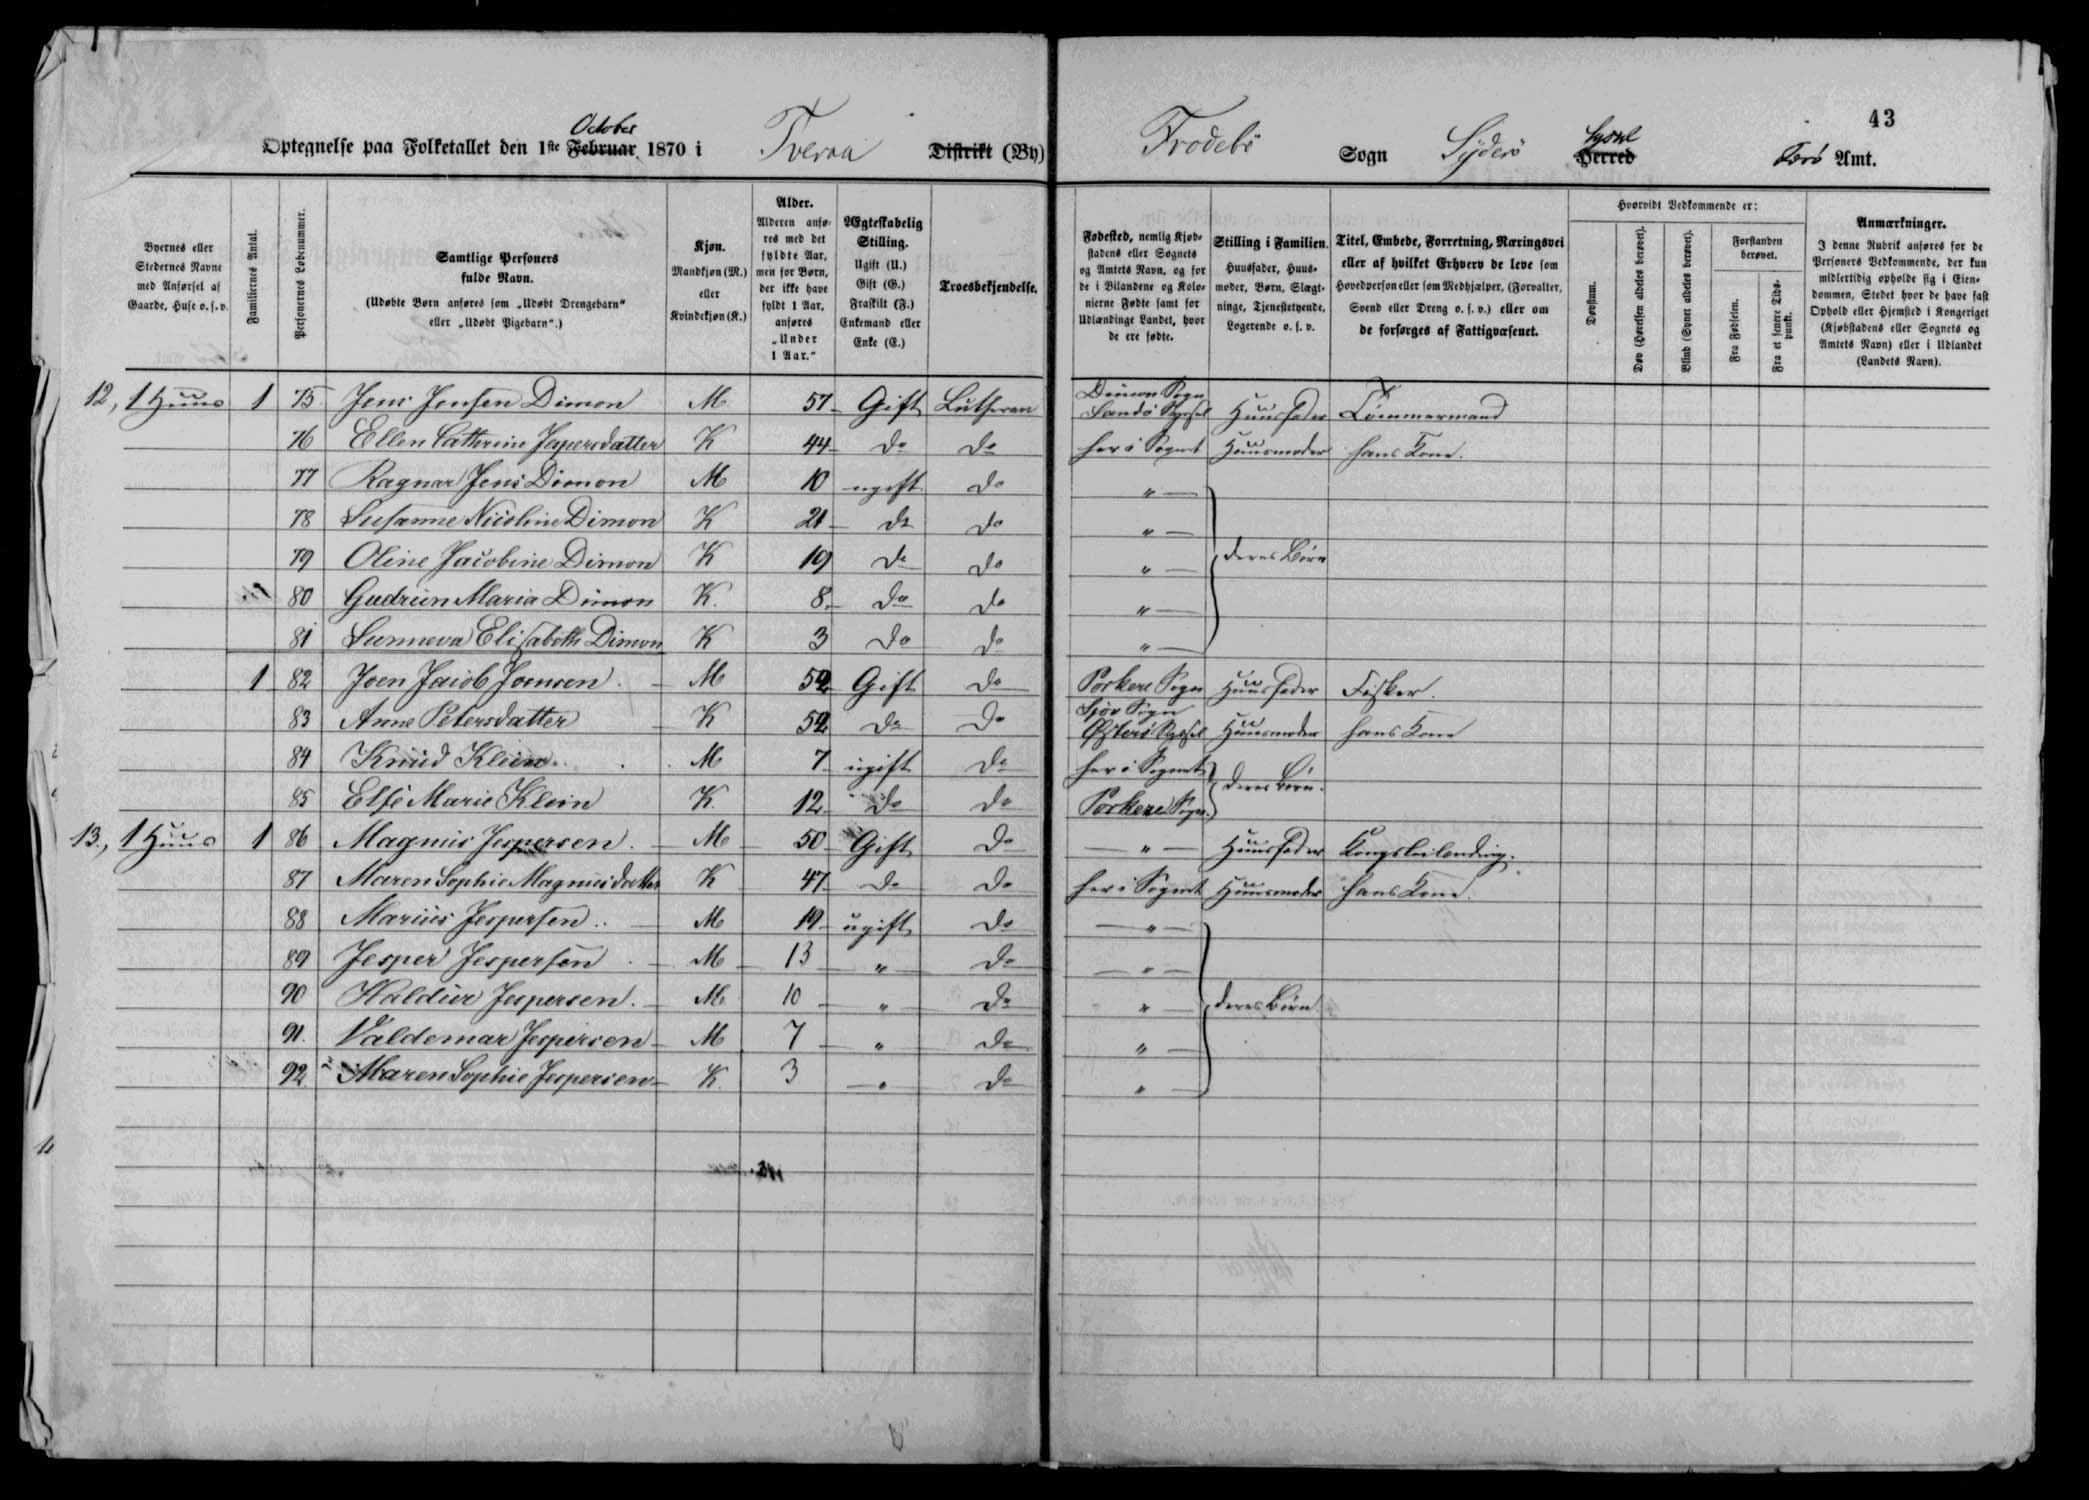 43
Optegnelse paa Folketallet den 1ste Februar October 1870 i Tveraa Distrikt (By) Frodebö Sogn Syderö Herred Syssel Færö Amt.
Byernes eller Stedernes Navne med Anførsel af Gaarde, Huse o. s. v.
Familiernes Antal.
Personernes Løbenummer.
Samtlige Personers fulde Navn.
(Udøbte Børn anføres som „Udøbt Drengebarn" eller „Udøbt Pigebarn".)
Kjøn.
Mandkjøn (M.) eller Kvindekjøn (K.)
Alder.
Alderen anføres med det fyldte Aar, men for Børn, der ikke have fyldt 1 Aar, anføres „Under 1 Aar."
Ægteskabelig Stilling.
Ugift (U.) Gift (G.) Fraskilt (F.) Enkemand eller Enke (E.)
Troesbekjendelse.
Fødested, nemlig Kjøbstadens eller Sognets og Amtets Navn, og for de i Bilandene og Kolonierne Fødte samt for Udlændinge Landet, hvor de ere fødte.
Stilling i Familien.
Huusfader, Huusmoder, Børn, Slægtninge, Tjenestetyende, Logerende o. s. v.
Titel, Embede, Forretning, Næringsvei eller af hvilket Erhverv de leve som Hovedperson eller som Medhjælper, (Forvalter, Svend eller Dreng o. s. v.) eller om de forsørges af Fattigvæsenet.
Hvorvidt Vedkommende er:
Døvstum.
Døv (Hørelsen aldeles berøvet).
Blind (Synet aldeles berøvet).
Forstanden berøvet.
Fra Fødselen.
Fra et senere Tidspunkt.
Anmærkninger.
I denne Rubrik anføres for de Personers Vedkommende, der kun midlertidig opholde sig i Eiendommen, Stedet hvor de have fast Ophold eller Hjemsted i Kongeriget (Kjøbstadens eller Sognets og Amtets Navn) eller i Udlandet (Landets Navn).
12, 1 Huus 1 75 Jens Jensen Dimon M 57 Gift Lutheran Dimon Sogn Sandö Syssel Huusfader Tömmermand
76 Ellen Cathrine Jespersdatter K 44 do do her i Sognet Huusmoder hans Kone.
77 Ragnar Jens Dimon M 10 ugift do „
78 Susanne Nicoline Dimon K 21 do do „
79 Oline Jacobine Dimon K 19 do do „ deres Börn
80 Gudrun Maria Dimon K. 8 do do „
81 Sunneva Elisabeth Dimon K 3 do do „
1 82 Joen Jacob Joensen M 52 Gift do Porkere Sogn Huusfader Fisker.
83 Anne Petersdatter K 52 do do Sjöv Sogn Österö Syssel Huusmoder hans Kone
84 Knud Klein M 7 ugift do her i Sognet deres Börn.
85 Else Marie Klein K. 12 do do Porkere Sogn.
13., 1 Huus 1 86 Magnus Jespersen. M 50 Gift do „ Huusfader
87 Maren Sophie Magnusdatter K 47 do do her i Sognet Huusmoder hans Kone.
88 Marius Jespersen M 19 ugift do „
89 Jesper Jespersen M 13 „ do „
90 Haldur Jespersen. M 10 „ do „ deres Börn.
91. Valdemar Jespersen M 7 „ do „
92 Maren Sophie Jespersen K. 3 „ do „